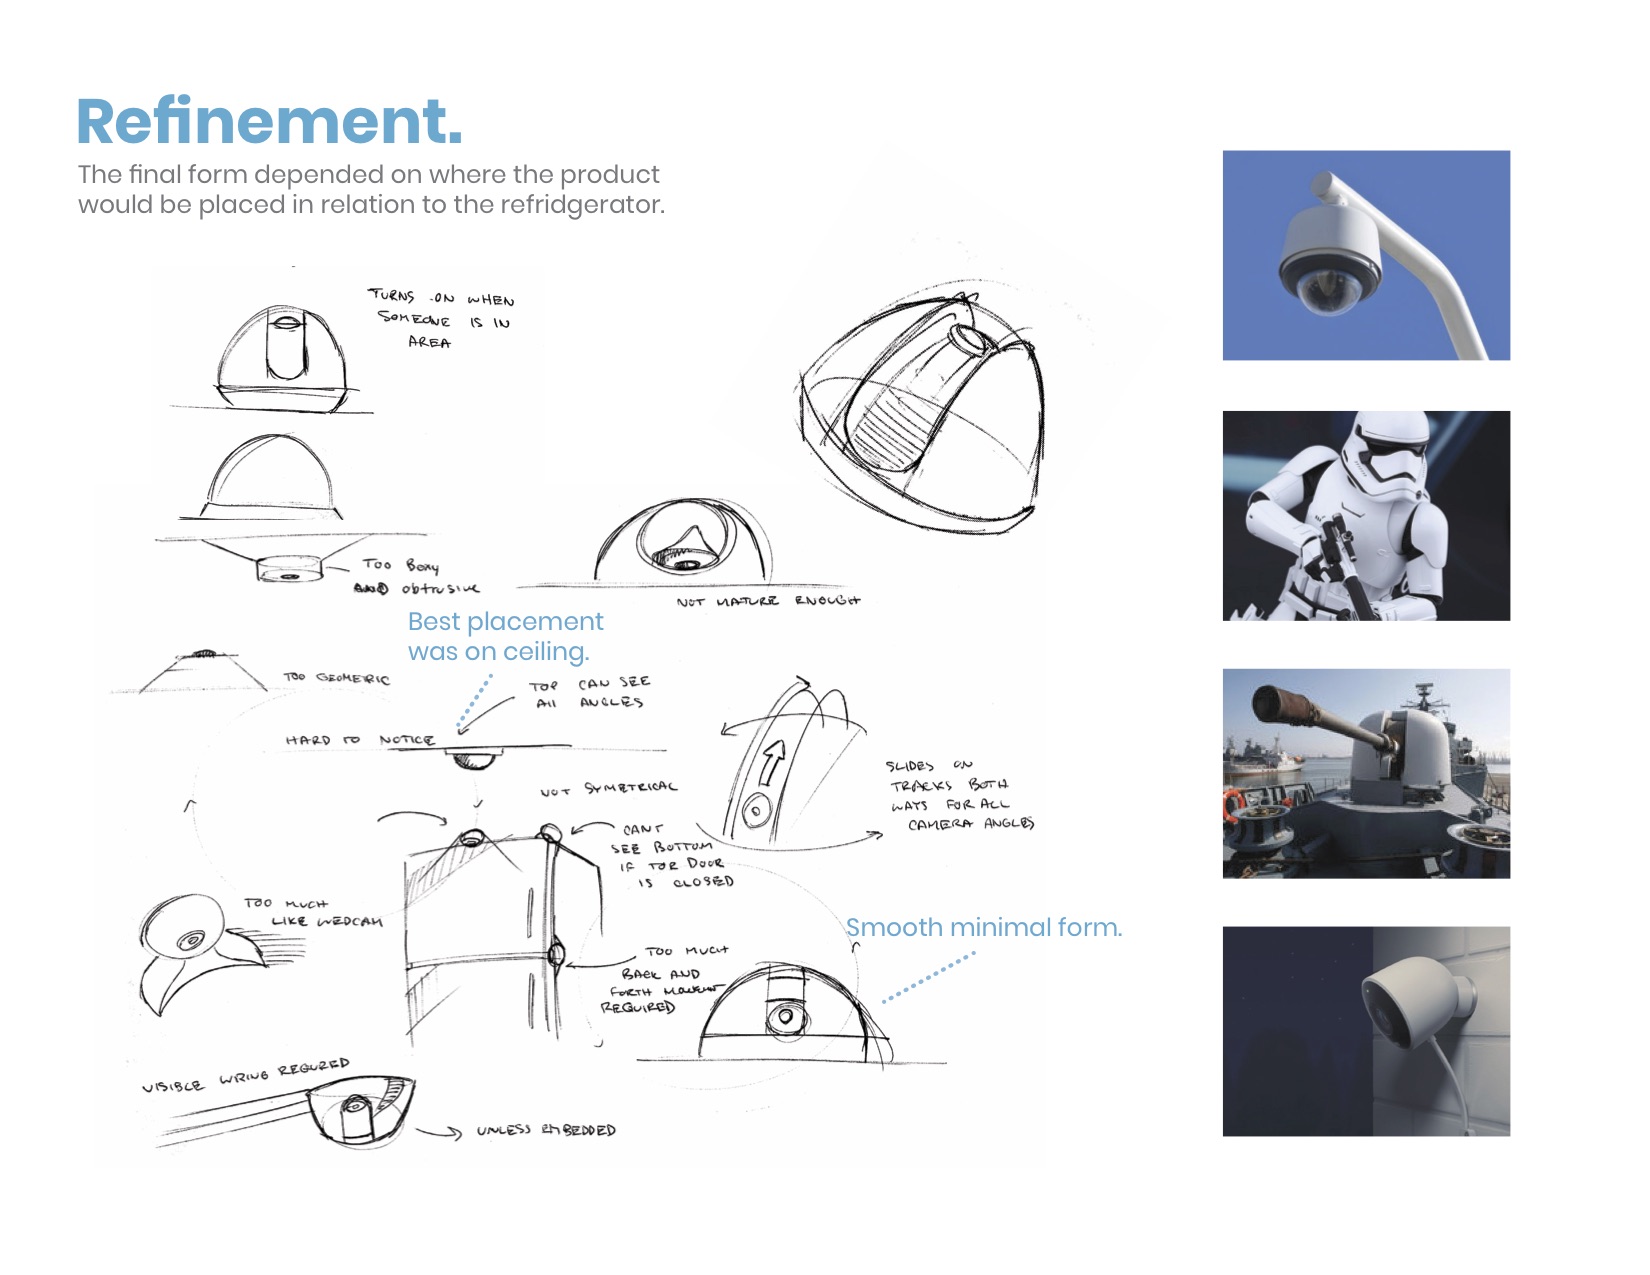 Refinement.
The final form depended on where the product
would be placed in relation to the refridgerator.
TURNS ON WHEN
SOMEONE IS IN
AREA
TOO BOXY
AND obtrusive
NOT MATURE ENOUGH
Best placement
was on ceiling.
TOO GEOMETRIC
TOP CAN SEE
All ANGLES
HARD TO NOTICE
NOT SYMETRICAL
SLIDES ON
TRACKS BOTH
WAYS FOR ALL
CAMERA ANGLES
CANT
SEE BOTTOM
IF TOP DOOR
IS CLOSED
TOO MUCH
LIKE WEDCAM
Smooth minimal form.
TOO MUCH
BACK AND
FORTH
REQUIRED
VISIBLE WIRING REQURED
UNLESS EMBEDDED